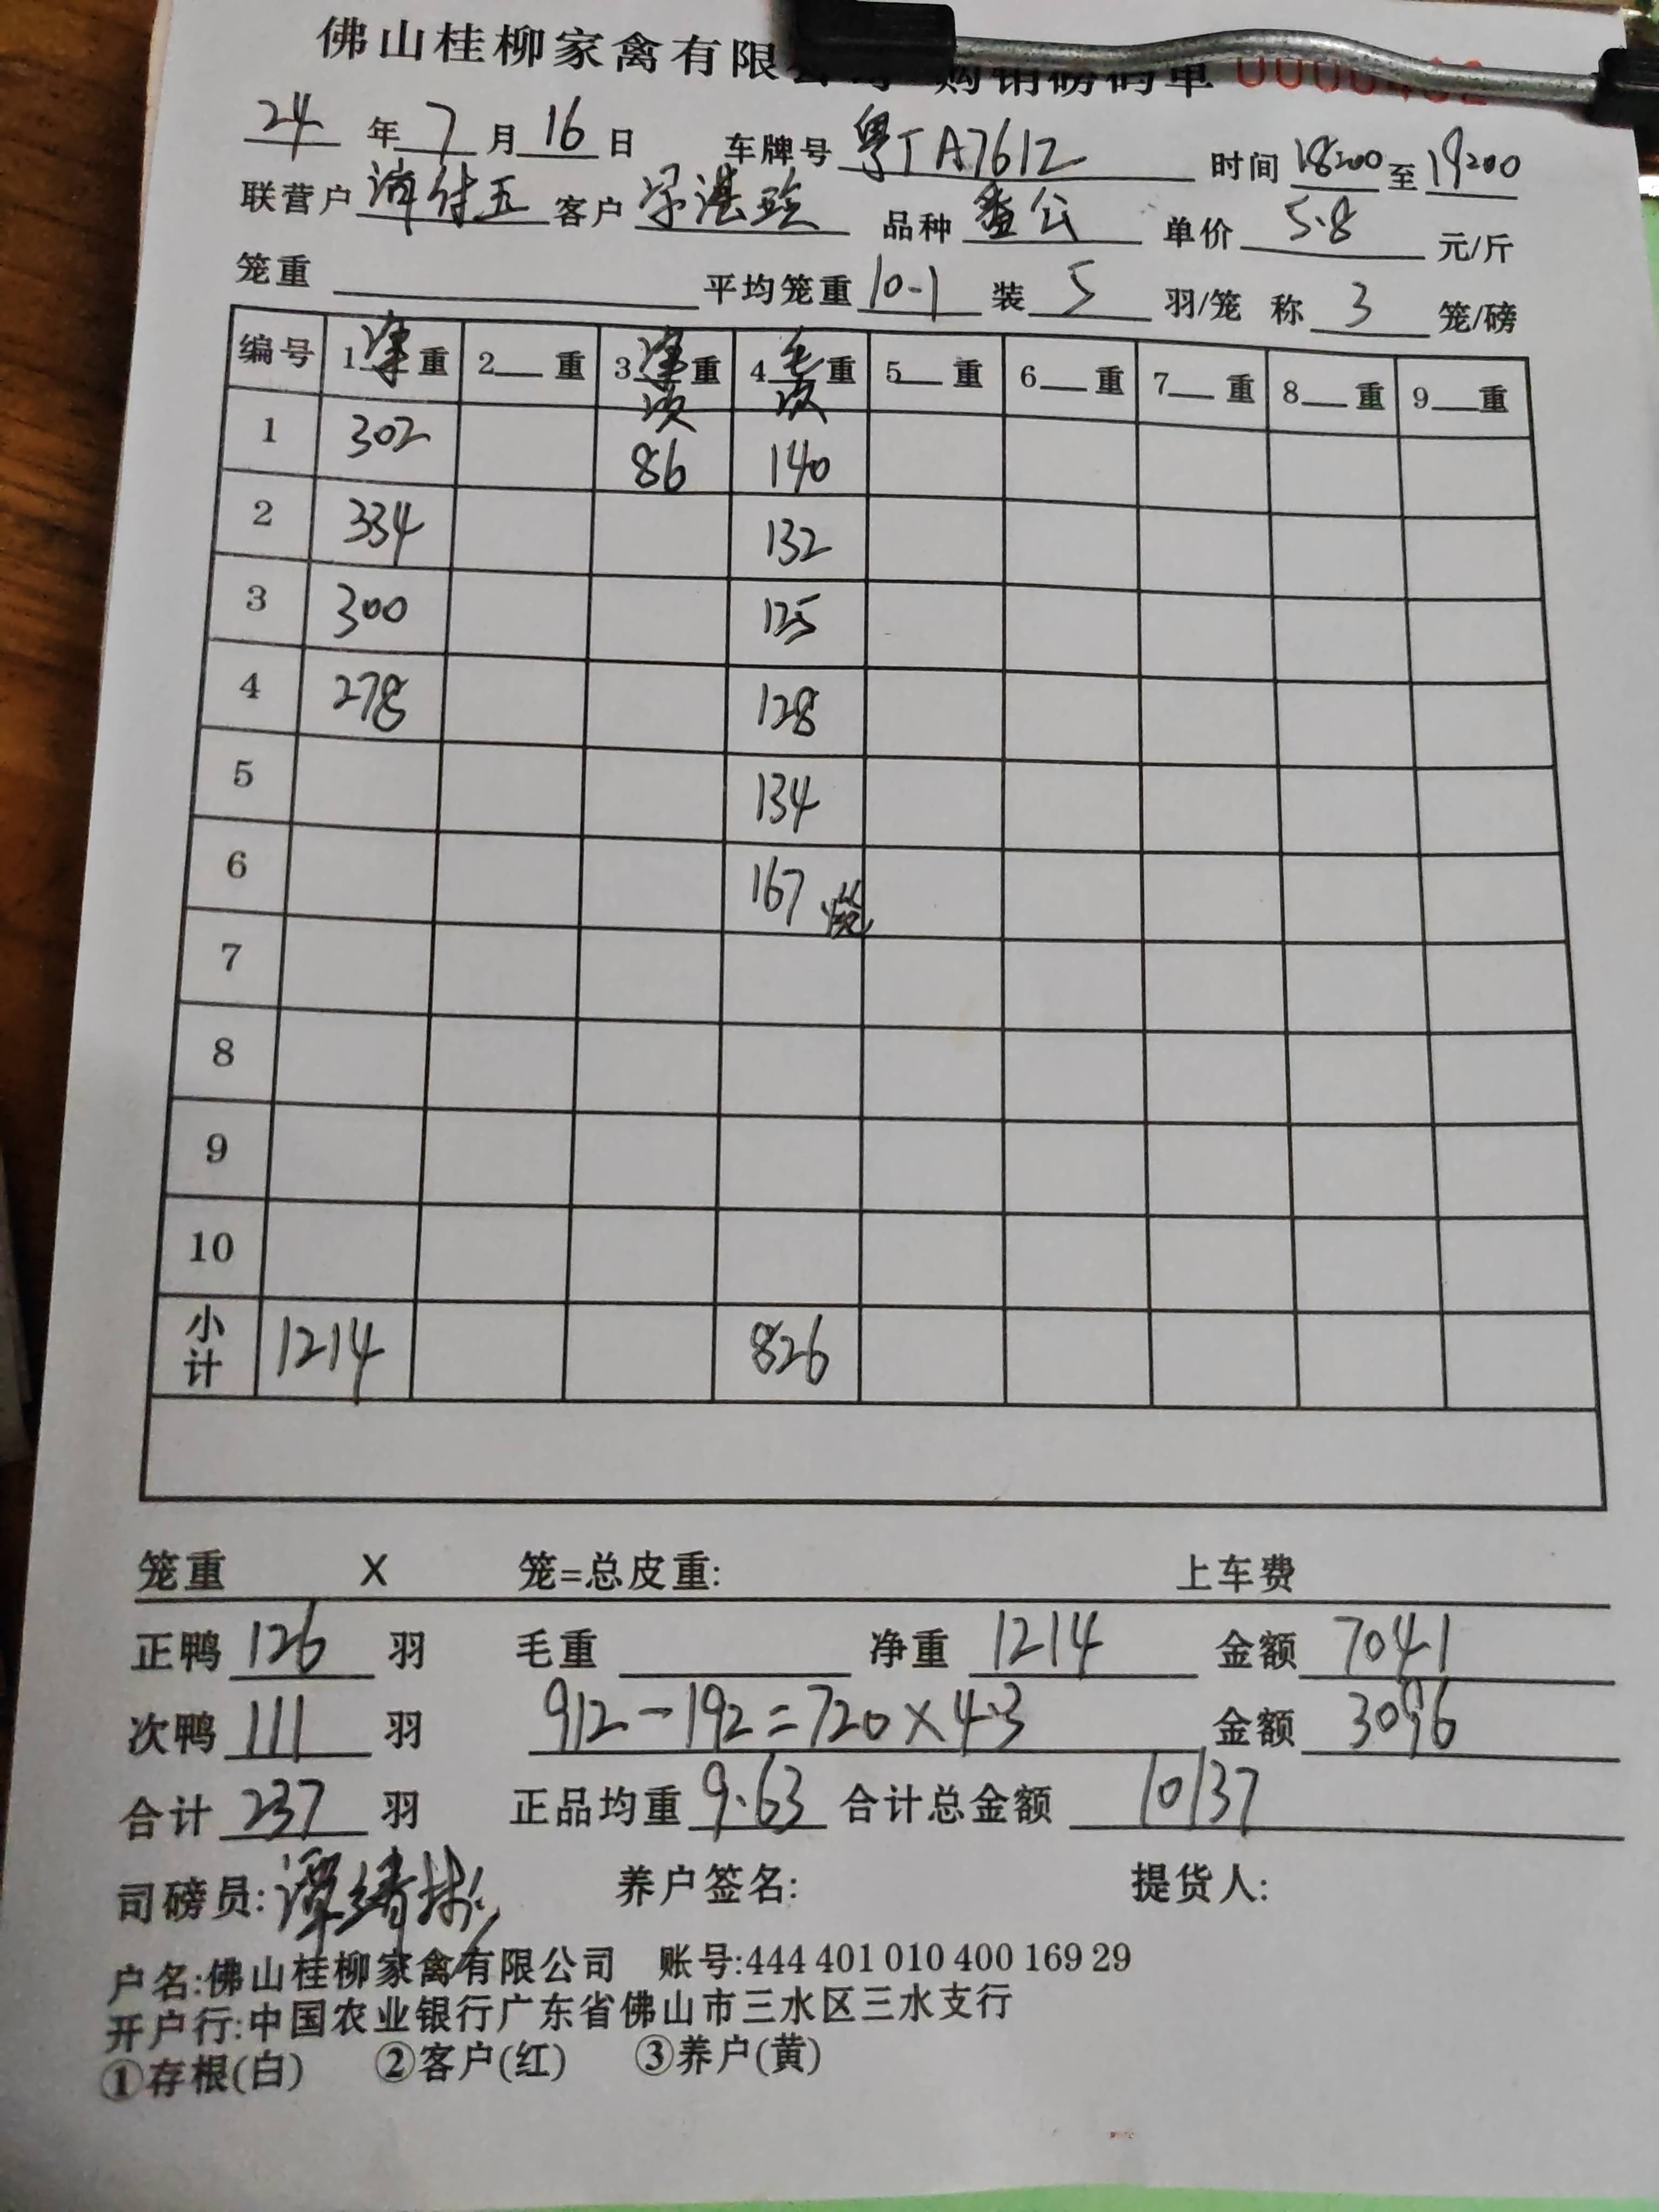 佛山桂柳家禽有限公司 购销磅码单
24 年 7 月 16 日 车牌号 粤TA7612 时间 18:00 至 19:00
联营户 客户 品种 番公 单价 5.8 元/斤
笼重 平均笼重 10-1 装 5 羽/笼 称 3 笼/磅
编号 1 净 重 2 重 3 净次 重 4 毛次 重 5 重 6 重 7 重 8 重 9 重
1 302 86 140
2 334 132
3 300 125
4 278 128
5 134
6 167
7
8
9
10
小计 1214 826
笼重 X 笼=总皮重: 上车费
正鸭 126 羽 毛重 净重 1214 金额 7041
次鸭 111 羽 912-192=720×4.3 金额 3096
合计 237 羽 正品均重 9.63 合计总金额 10137
司磅员: 养户签名: 提货人:
户名:佛山桂柳家禽有限公司 账号:444 401 010 400 169 29
开户行:中国农业银行广东省佛山市三水区三水支行
①存根(白) ②客户(红) ③养户(黄)